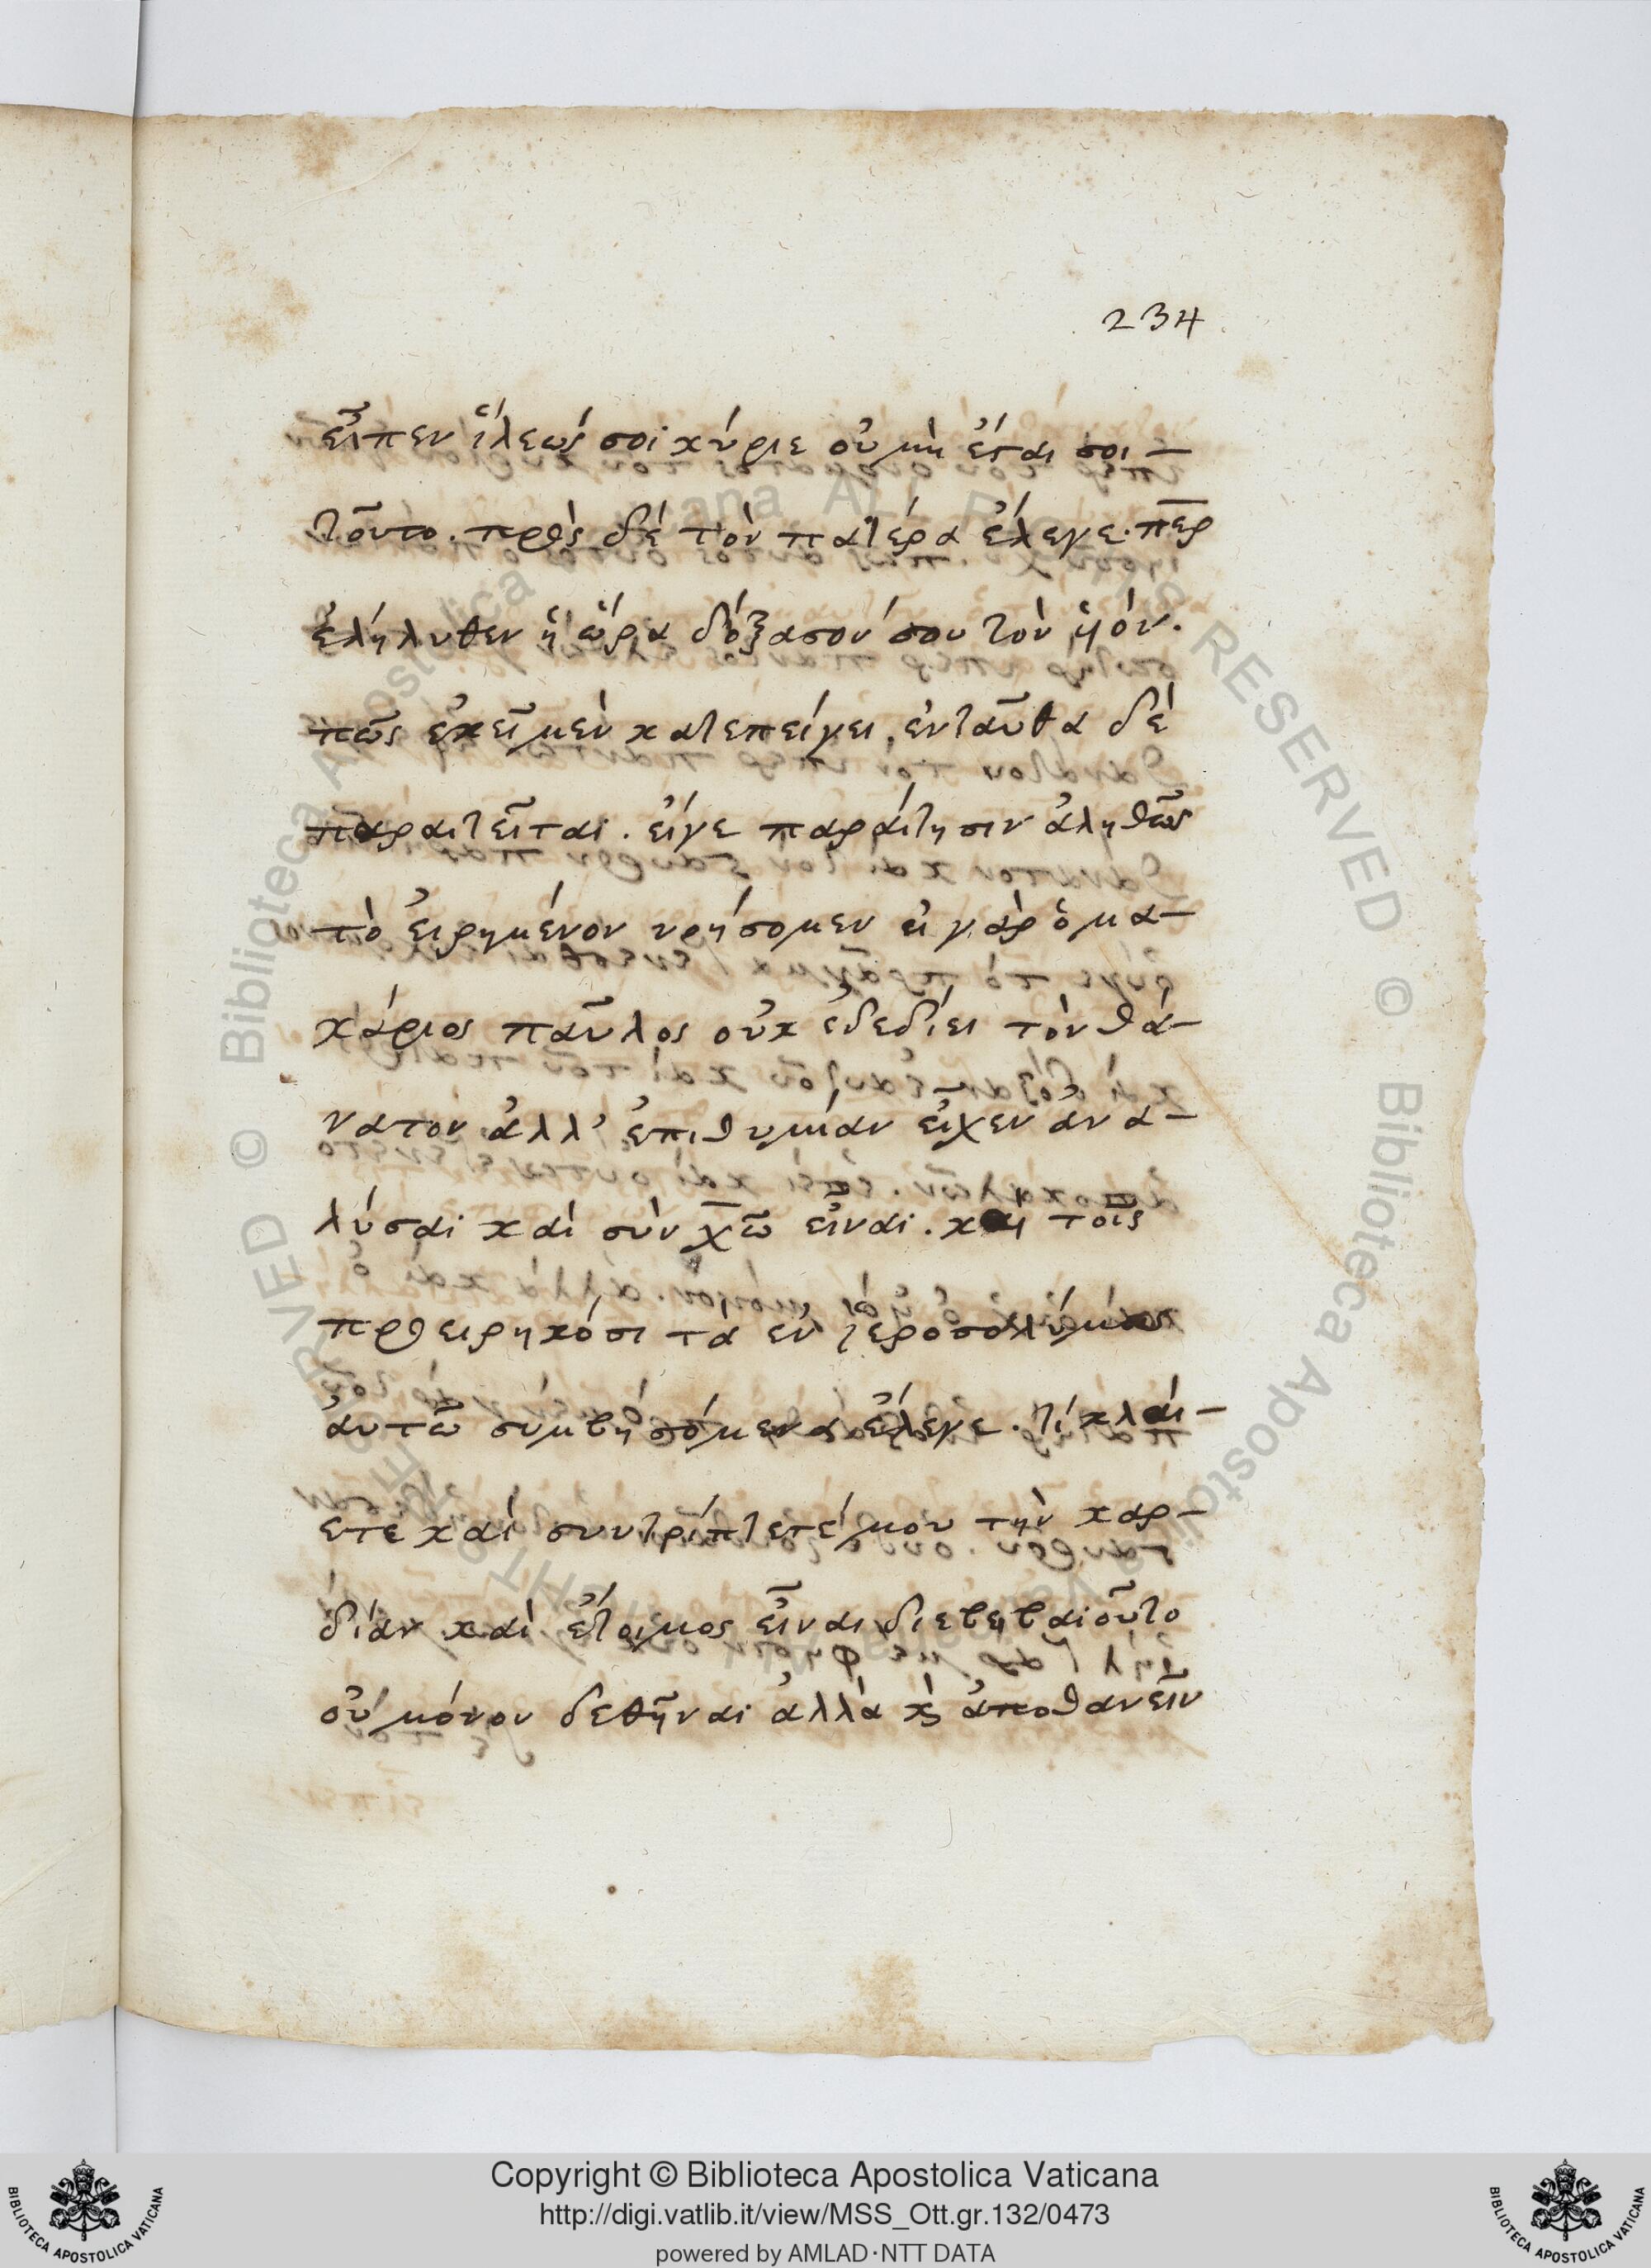 234
εἶπεν ἵλεώς σοι κύριε οὐ μὴ ἔσται σοι –
τοῦτο. πρὸς δὲ τὸν πατέρα ἔλεγε. π̅ε̅ρ
ἐλήλυθεν ἡ ὥρα δόξασόν σου τὸν ὑιόν.
πῶς ἐκεῖ μὲν κατεπείγει, ἐνταῦθα δὲ
παραιτεῖται. εἴγε παραίτησιν ἀληθῶς
τὸ εἰρημένον νοήσομεν εἰ γὰρ ὁ μα–
κάριος παῦλος οὐκ ἐδεδίει τὸν θά–
νατον ἀλλ' ἐπιθυμίαν εἶχεν ἀνα–
λύσαι καὶ σὺν χ̅ω̅ εἶναι. καὶ τοῖς
προειρηκόσι τὰ ἐν ἱεροσολύμοις
ἀυτῶ συμβησόμενα ἔλεγε. τί κλαί–
ετε καὶ συντρίπτετέ μου τὴν καρ–
δίαν καὶ ἕτοιμος εἶναι διεβεβαιοῦτο
οὐ μόνον δεθῆναι ἀλλὰ κ̀ ἀποθανεῖν
Copyright © Biblioteca Apostolica Vaticana
http://digi.vatlib.it/view/MSS_Ott.gr.132/0473
powered by AMLAD·NTT DATA
BIBLIOTECA APOSTOLICA VATICANA
BIBLIOTECA APOSTOLICA VATICANA